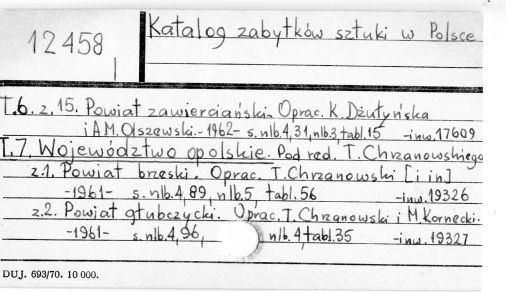 12458
Katalog zabytków sztuki w Polsce
T.6. z.15. Powiat zawierciański. Oprac. K. Dżułyńska
i A.M. Olszewski. -1962- s.nlb.4,31,nlb.3,tabl.15 -inw.17609
T.7. Województwo opolskie. Pod red. T. Chrzanowskiego
z.1. Powiat brzeski. Oprac. T. Chrzanowski [i in]
-1961- s.nlb.4,89, nlb.5, tabl.56 -inw.19326
z.2. Powiat głubczycki. Oprac. T. Chrzanowski i M Kornecki.
-1961- s.nlb.4,96, nlb.4,tabl.35 -inw.19327
DUJ. 693/70. 10 000.